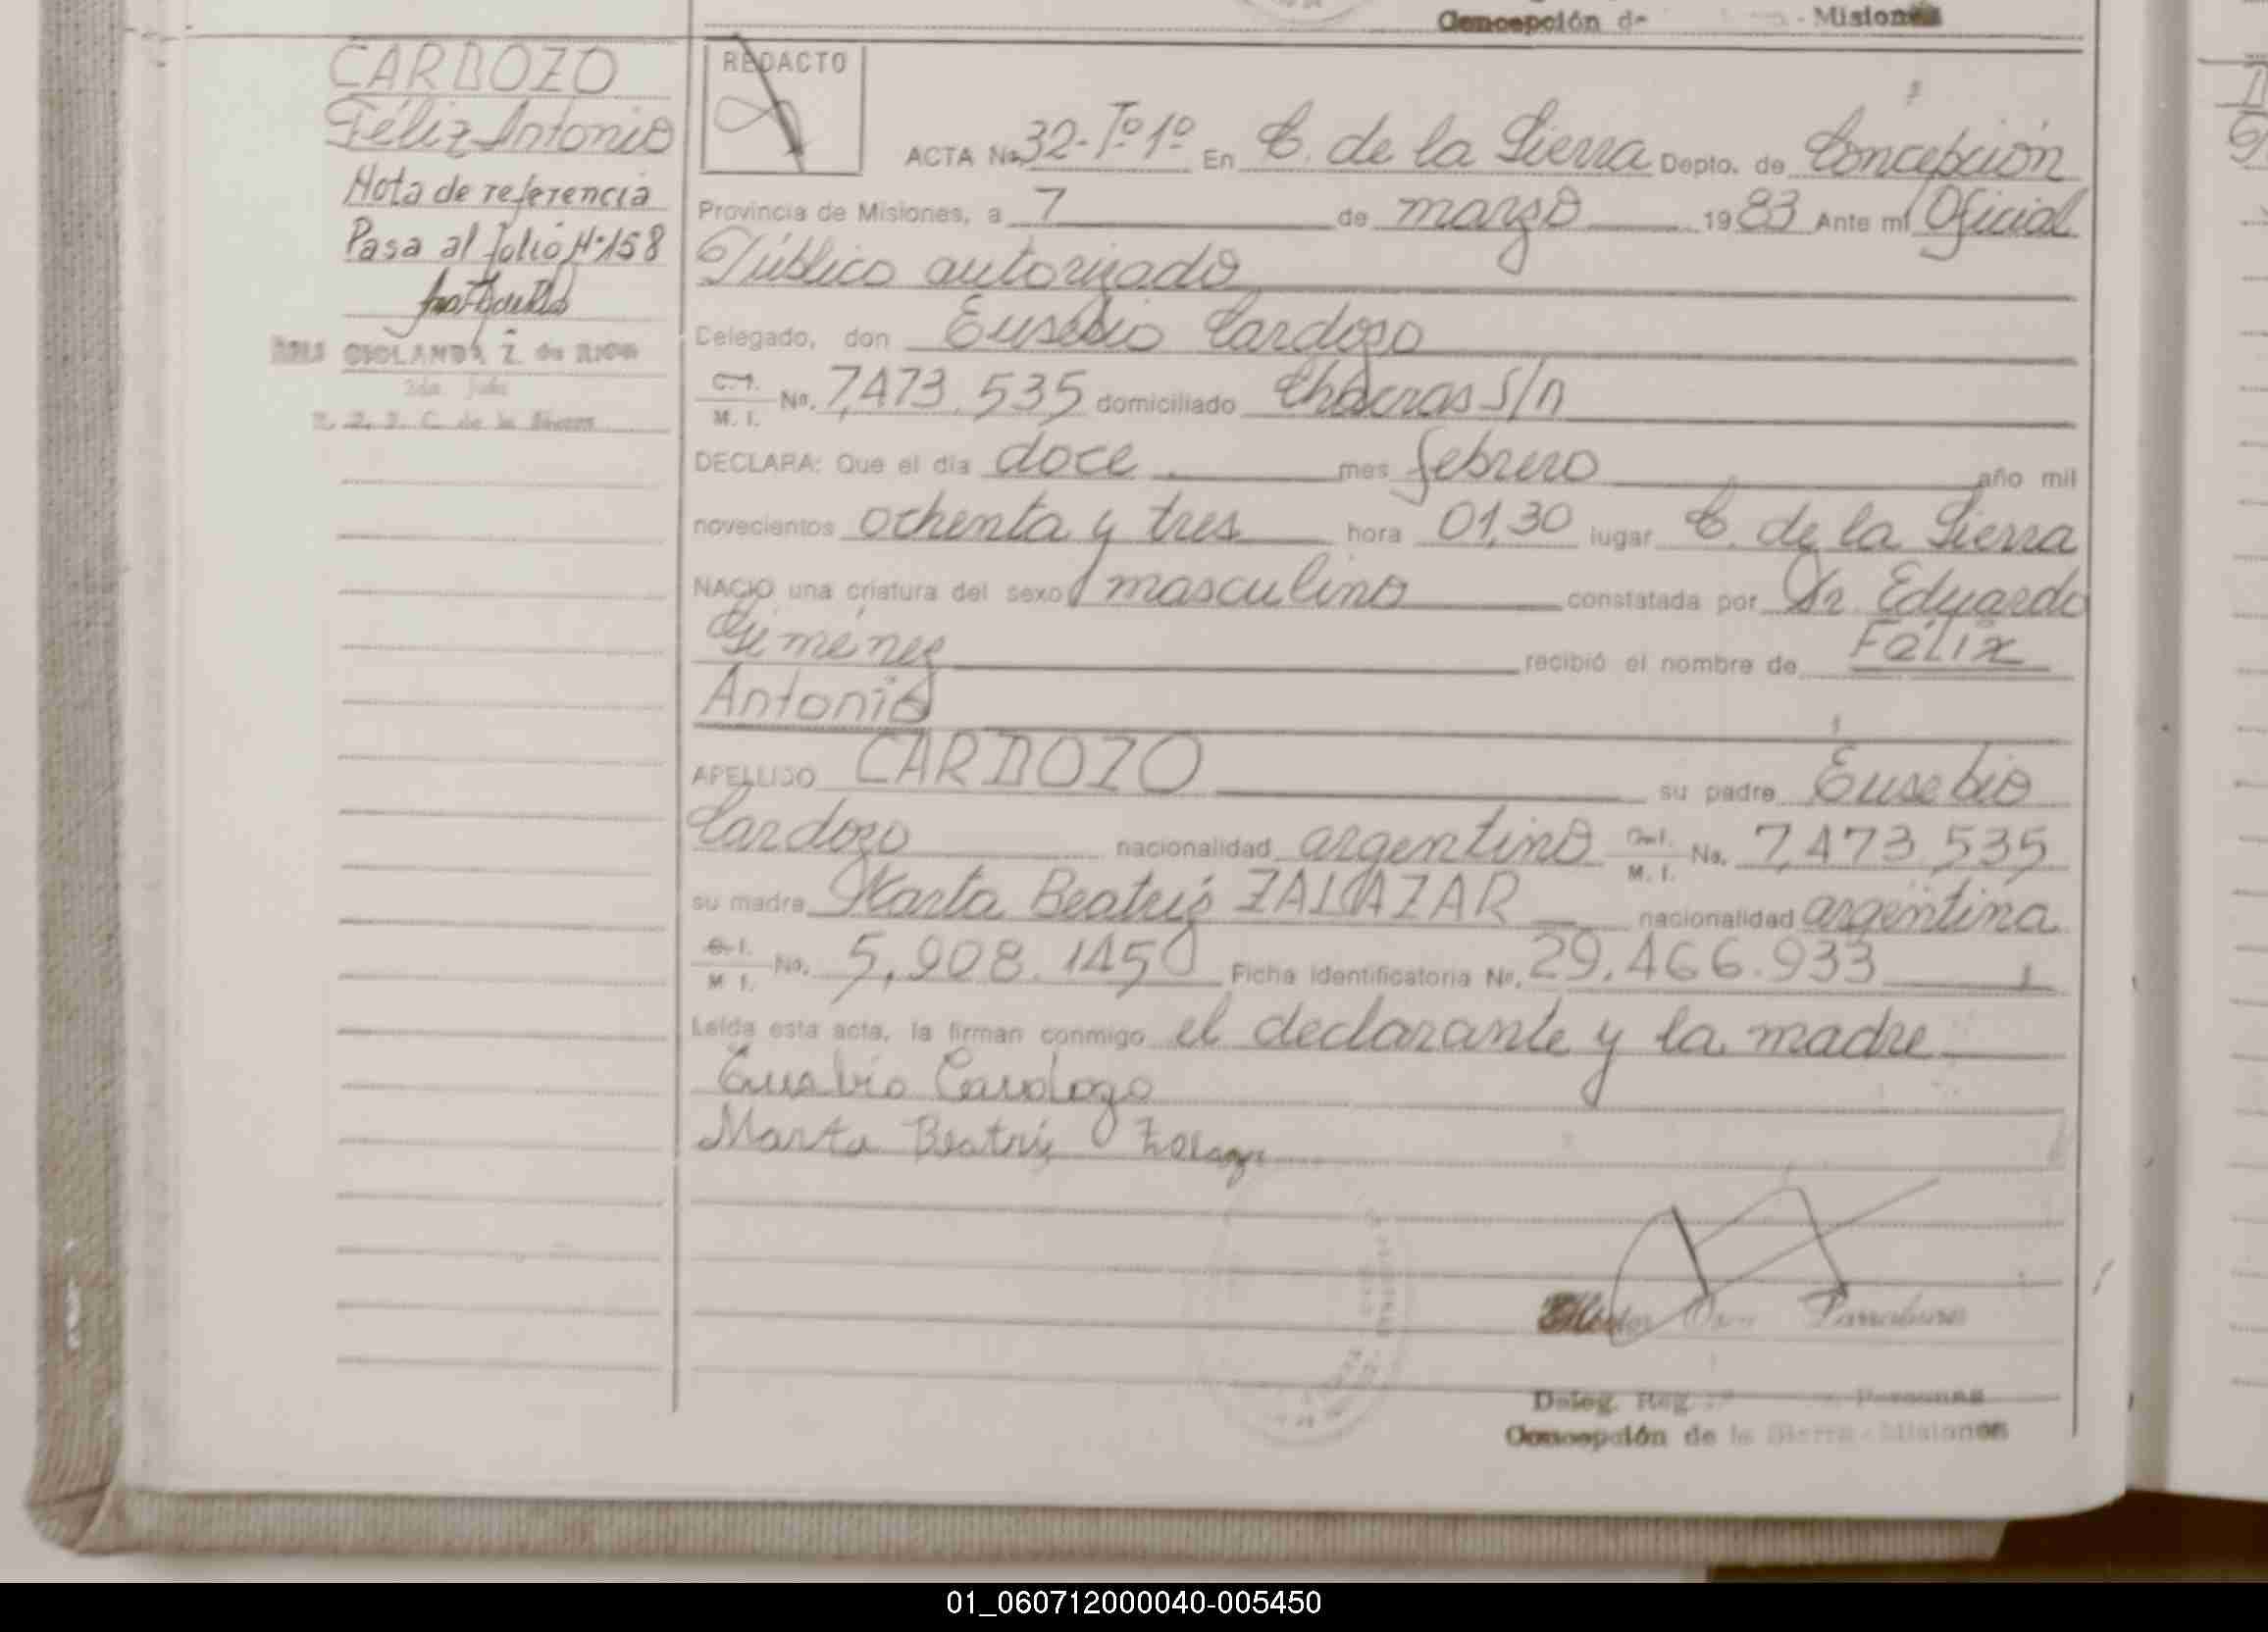 Concepción de - Misiones
CARDOZO
Féliz Antonio
Nota de referencia
Pasa al folio Nº 158
GIOLANDA Z. de RIOS
C. de la Sierra
REDACTO
ACTA No. 32-Tº1º En C. de la Sierra Depto. de Concepción
Provincia de Misiones, a 7 de marzo 1983 Ante mí Oficial
Público autorizado
Delegado, don Eusebio Cardozo
C.I. M. I. No. 7,473.535 domiciliado Chacras S/n
DECLARA: Que el día doce mes febrero año mil
novecientos ochenta y tres hora 01,30 lugar C. de la Sierra
NACIO una criatura del sexo masculino constatada por Dr. Eduardo
Giménez recibió el nombre de Félix
Antonio
APELLIDO CARDOZO su padre Eusebio
Cardozo nacionalidad argentino C.I. M. I. No. 7,473.535
su madre Marta Beatriz ZALAZAR nacionalidad argentina
C.I. M. I. No. 5,908.1450 Ficha identificatoria No. 29.466.933
Leída esta acta, la firman conmigo el declarante y la madre
Eusebio Cardozo
Marta Beatriz
Deleg. Reg. Personas
Concepción de la Sierra - Misiones
01_060712000040-005450